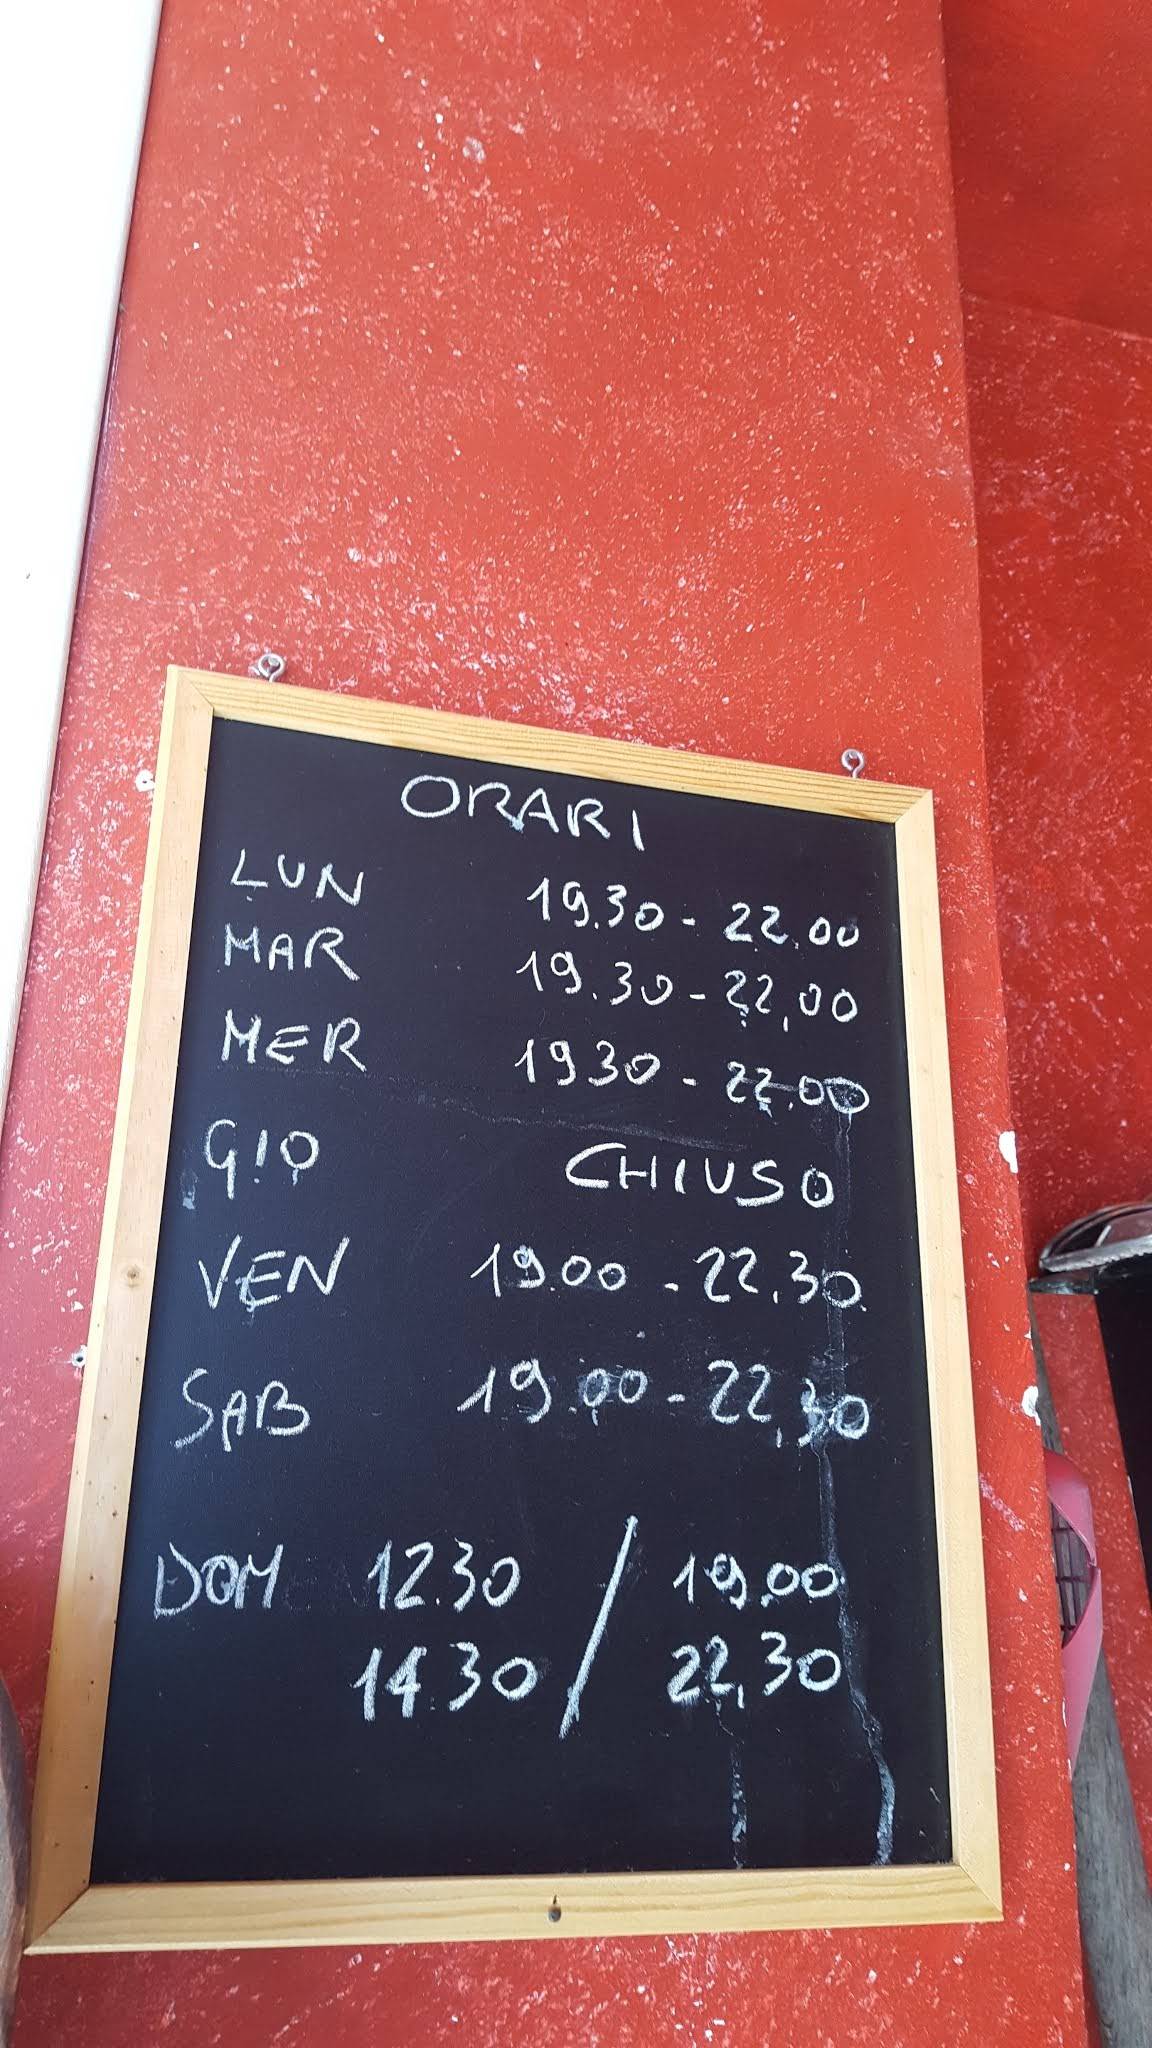 ORARI
LUN 19.30 - 22.00
MAR 19.30 - 22,00
MER 1930 - 22.00
GIO CHIUSO
VEN 19.00 - 22,30
SAB 19.00 - 22,30
DOM 12.30 / 19.00
14.30 / 22,30